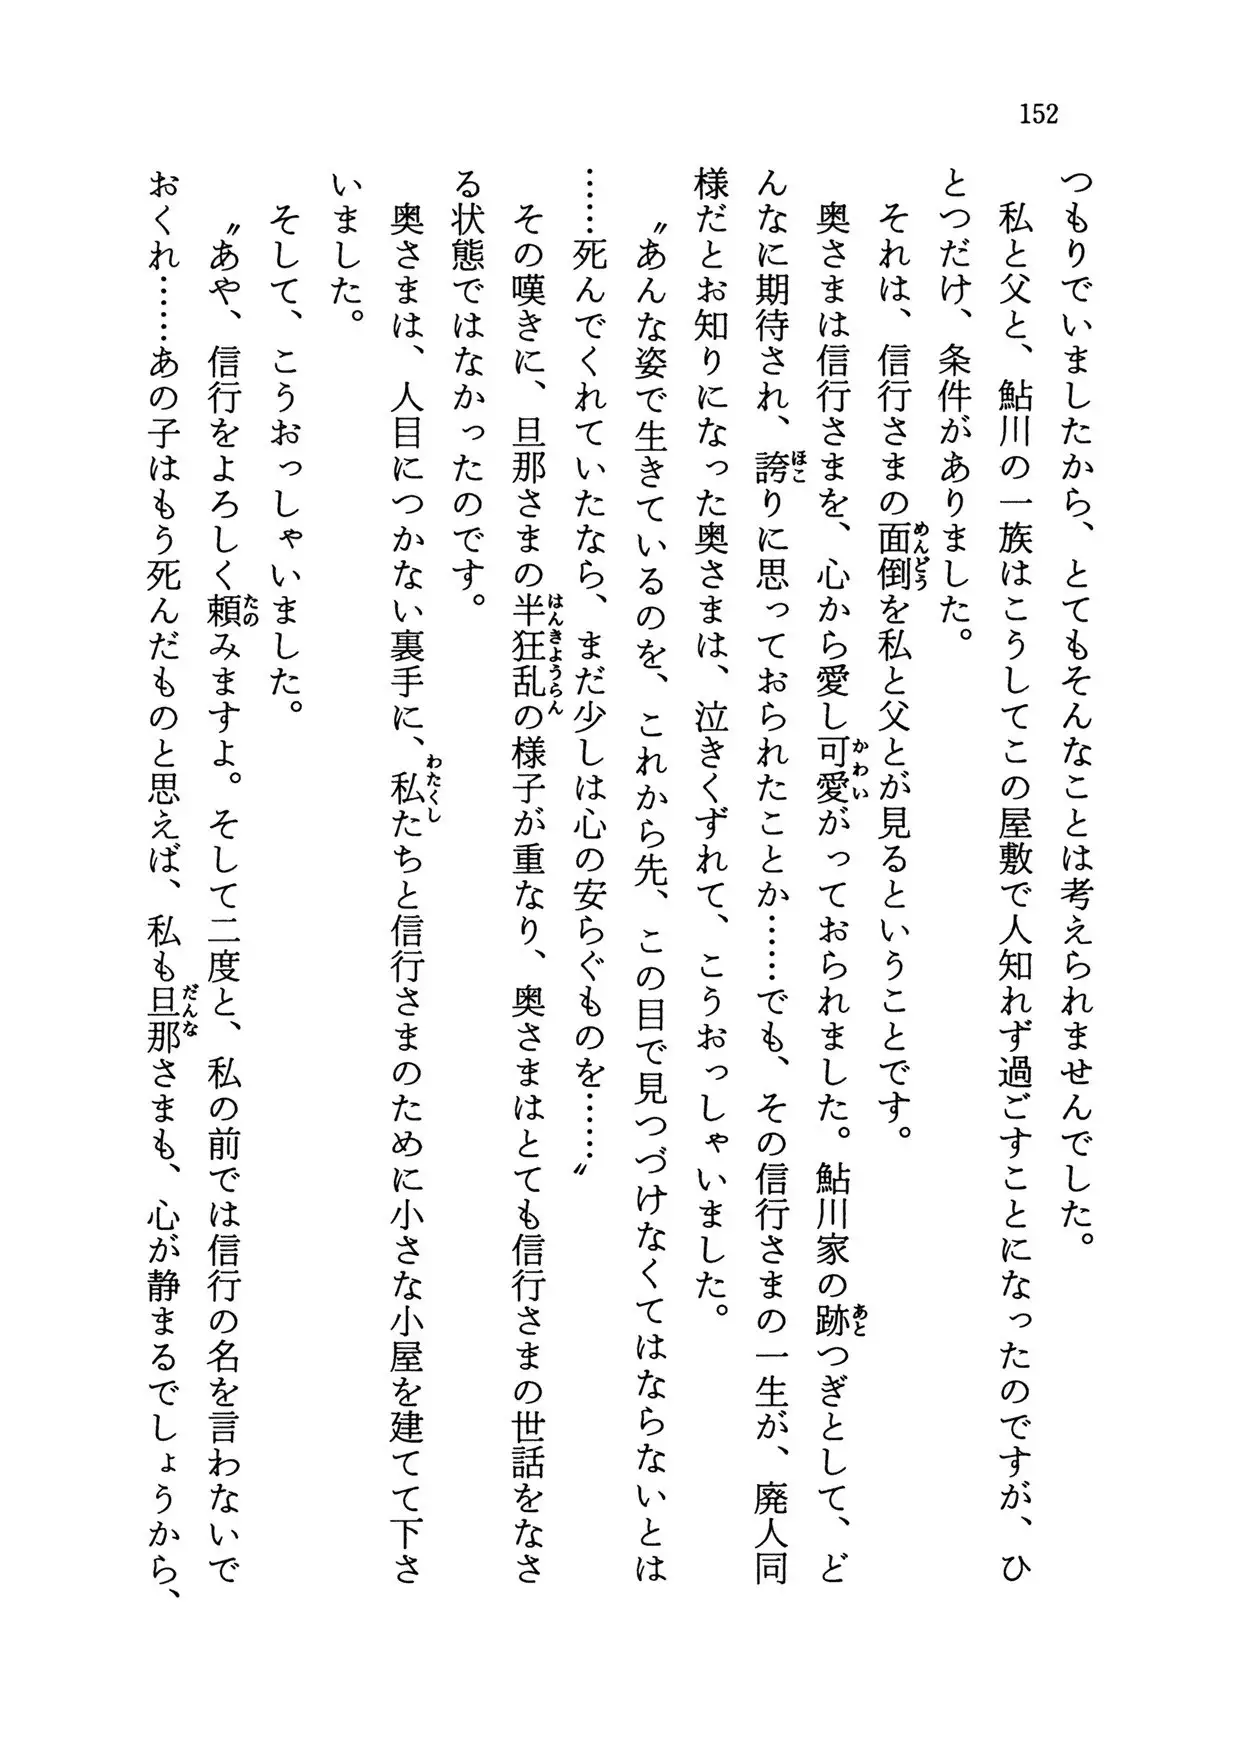 152
つもりでいましたから、とてもそんなことは考えられませんでした。
私と父と、鮎川の一族はこうしてこの屋敷で人知れず過ごすことになったのですが、ひ
とつだけ、条件がありました。
それは、信行さまの面倒を私と父とが見るということです。
奥さまは信行さまを、心から愛し可愛がっておられました。鮎川家の跡つぎとして、ど
んなに期待され、誇りに思っておられたことか……でも、その信行さまの一生が、廃人同
様だとお知りになった奥さまは、泣きくずれて、こうおっしゃいました。
〝あんな姿で生きているのを、これから先、この目で見つづけなくてはならないとは
……死んでくれていたなら、まだ少しは心の安らぐものを……〟
その嘆きに、旦那さまの半狂乱の様子が重なり、奥さまはとても信行さまの世話をなさ
る状態ではなかったのです。
奥さまは、人目につかない裏手に、私たちと信行さまのために小さな小屋を建てて下さ
いました。
そして、こうおっしゃいました。
〝あや、信行をよろしく頼みますよ。そして二度と、私の前では信行の名を言わないで
おくれ……あの子はもう死んだものと思えば、私も旦那さまも、心が静まるでしょうから、